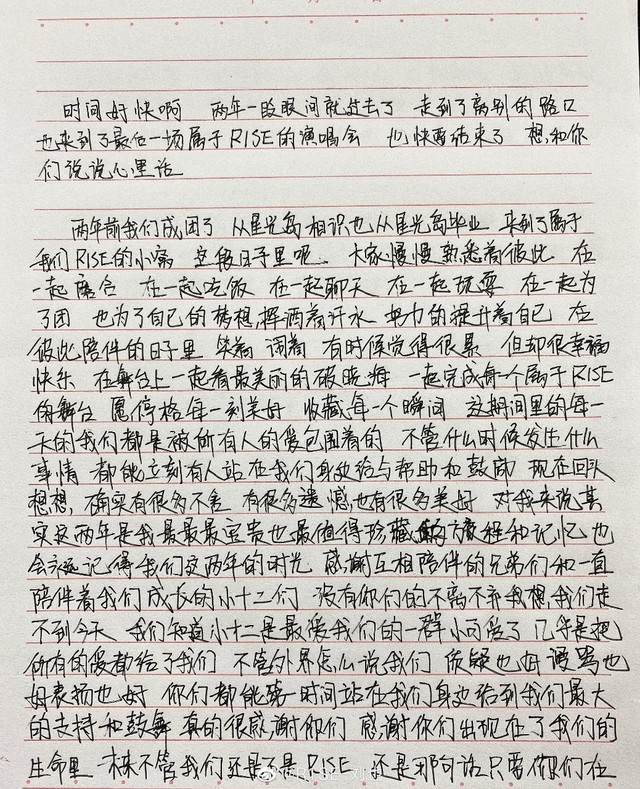 时间好快啊 两年一段眼间就过去了 走到了离别的路口
也来到了最后一场属于RISE的演唱会 也快要结束了 想和你
们说说心里话
两年前我们成团了 从星光岛相识也从星光岛毕业 来到了属于
我们RISE的小窝 这段日子里呢 大家慢慢熟悉着彼此 在
一起磨合 在一起吃饭 在一起聊天 在一起玩耍 在一起为
了团 也为了自己的梦想挥洒着汗水 努力的提升着自己 在
彼此陪伴的日子里 笑着 闹着 有时候觉得很累 但却很幸福
快乐 在舞台上一起看最美丽的破晓海 一起完成每一个属于RISE
的舞台 愿停格每一刻美好 收藏每一个瞬间 这期间里的每一
天的我们都是被所有人的爱包围着的 不管什么时候发生什么
事情 都能立刻有人站在我们身边给与帮助和鼓励 现在回头
想想,确实有很多不舍 有很多遗憾,也有很多美好 对我来说其
实这两年是我最最最宝贵也最值得珍藏的旅程和记忆 也
会永远记得我们这两年的时光 感谢互相陪伴的兄弟们和一直
陪伴着我们成长的小十二们 没有你们的不离不弃我想,我们走
不到今天 我们知道小十二是最爱我们的一群小可爱了 几乎是把
所有的爱都给了我们 不管外界怎么说我们 质疑也好 谩骂也
好表扬也好 你们都能第一时间站在我们身边给到我们最大
的支持和鼓舞 真的很感谢你们 感谢你们出现在了我们的
生命里 未来不管我们还是不是RISE 还是那句话只要你们在